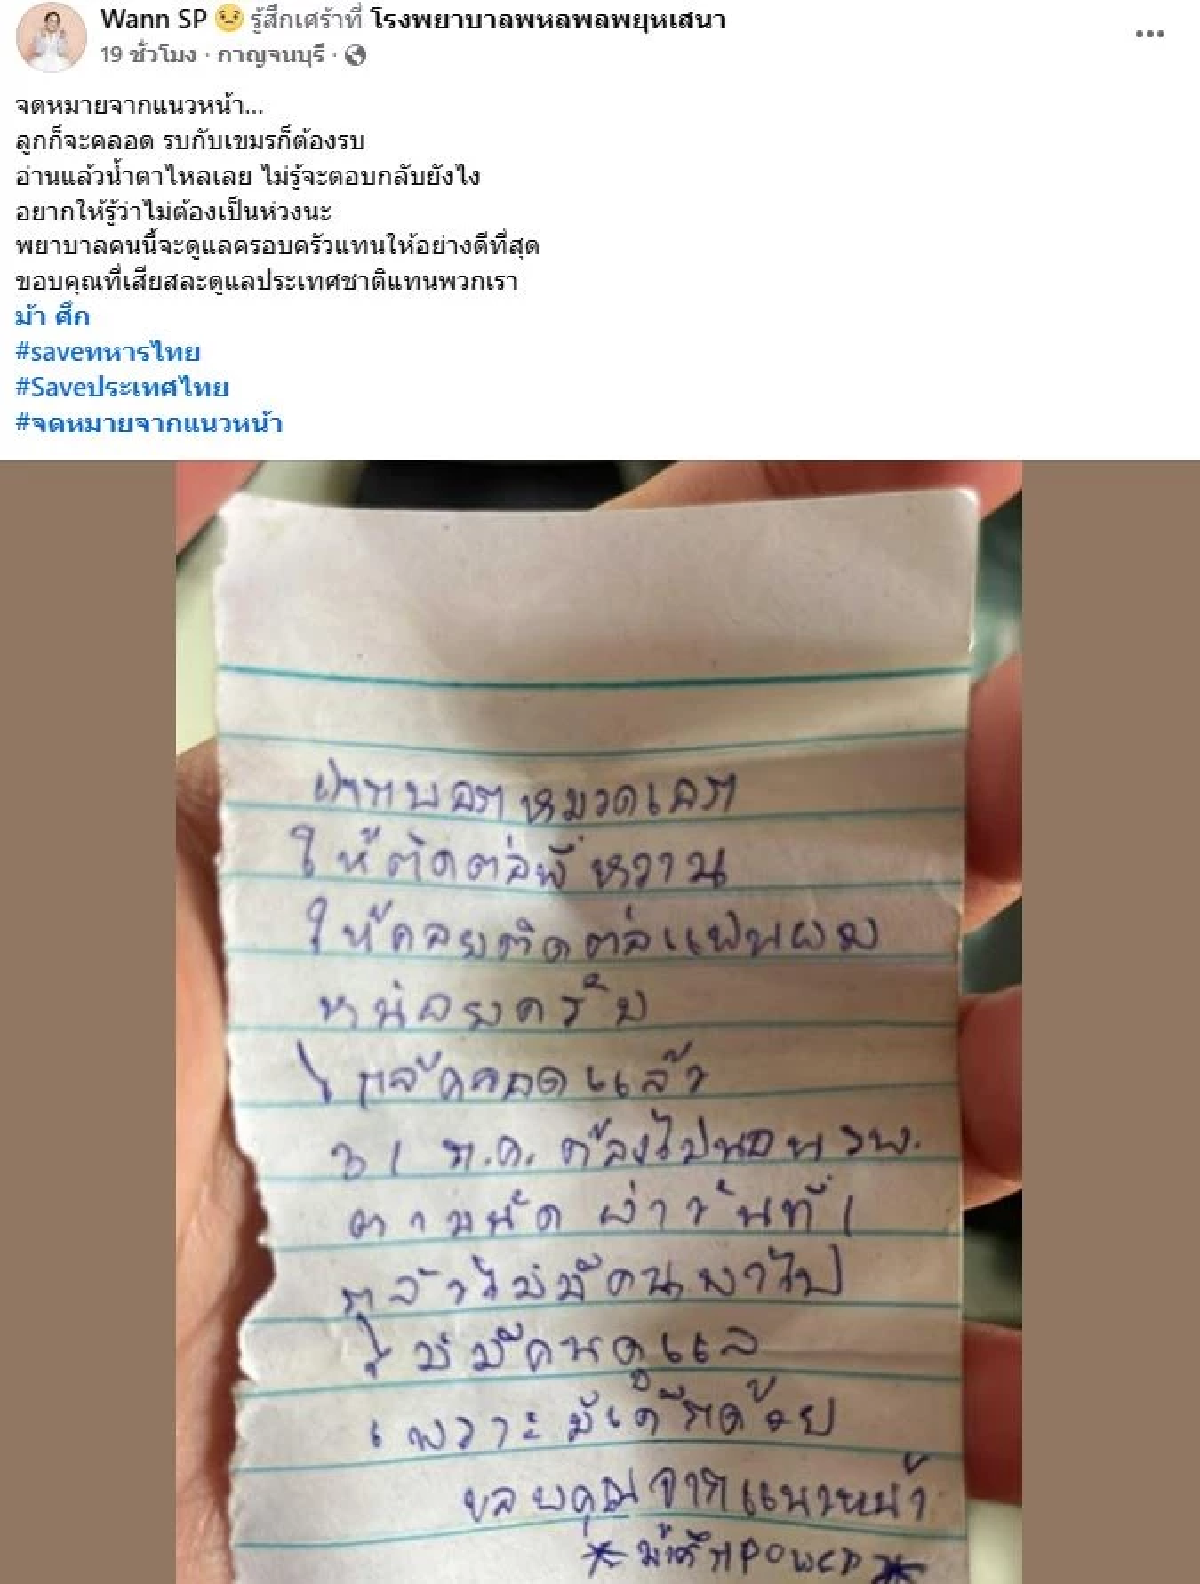 Wann SP 😟 รู้สึกเศร้าที่ โรงพยาบาลพหลพลพยุหเสนา
19 ชั่วโมง · กาญจนบุรี ·
จดหมายจากแนวหน้า...
ลูกก็จะคลอด รบกับเขมรก็ต้องรบ
อ่านแล้วน้ำตาไหลเลย ไม่รู้จะตอบกลับยังไง
อยากให้รู้ว่าไม่ต้องเป็นห่วงนะ
พยาบาลคนนี้จะดูแลครอบครัวแทนให้อย่างดีที่สุด
ขอบคุณที่เสียสละดูแลประเทศชาติแทนพวกเรา
ม้า ศึก
#saveทหารไทย
#Saveประเทศไทย
#จดหมายจากแนวหน้า
ฝากบอกหมวดเอก
ให้ติดต่อพี่หวาน
ให้คอยติดต่อแฟนผม
หน่อยครับ
ใกล้คลอดแล้ว
31 ก.ค. ต้องไปนอน รพ.
ตามนัด ผ่าวันที่ 1
กลัวไม่มีคนพาไป
ไม่มีคนดูแล
เพราะมีเด็กด้วย
ขอบคุณจากแนวหน้า
* ม้าศึก POWER *